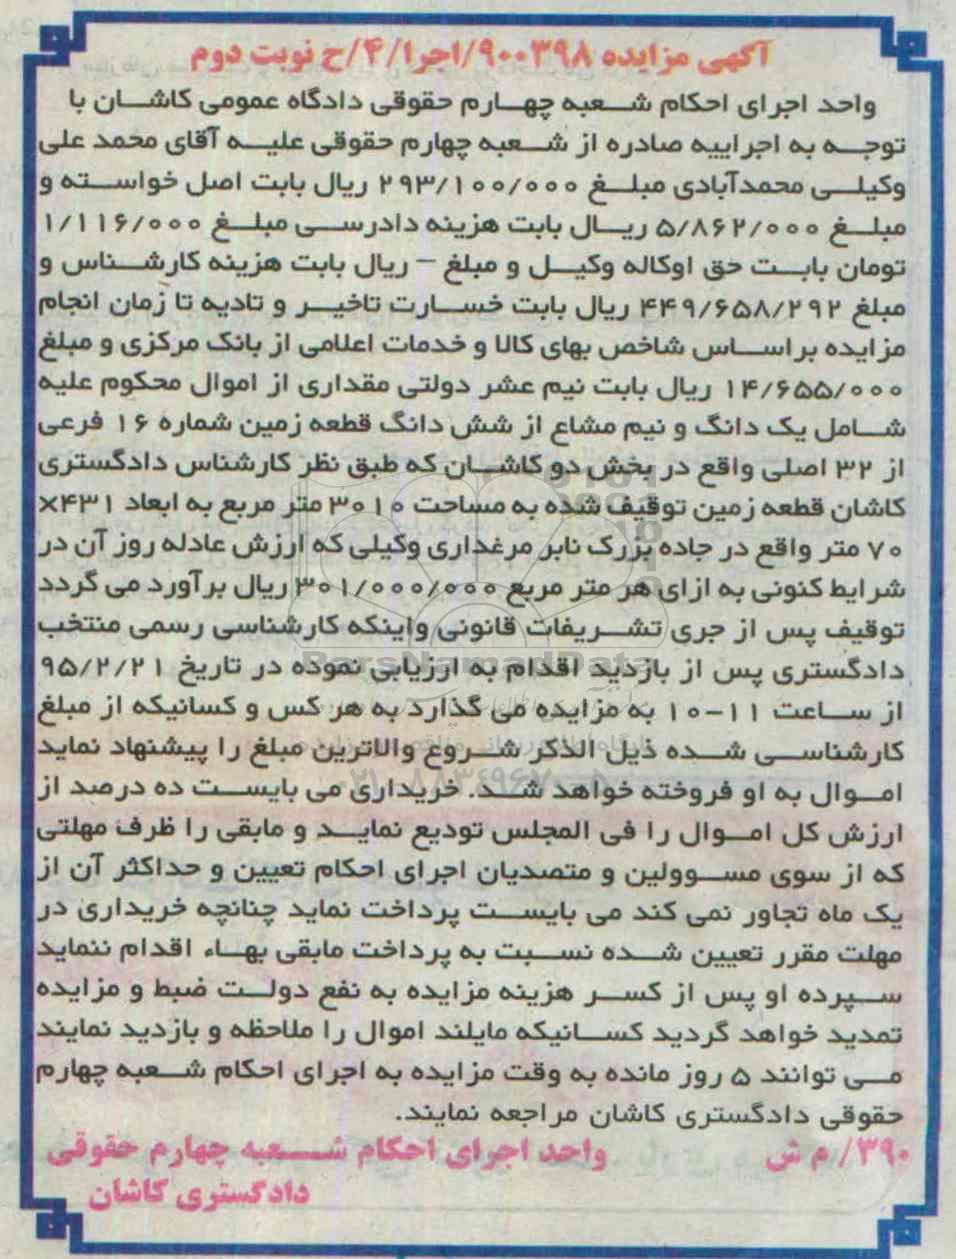 آگهی مزایده ۹۰۰۳۹۸/اجرا/۴/ح نوبت دوم
واحد اجرای احکام شعبه چهارم حقوقی دادگاه عمومی کاشان با
توجه به اجراییه صادره از شعبه چهارم حقوقی علیه آقای محمد علی
وکیلی محمدآبادی مبلغ ۲۹۳/۱۰۰/۰۰۰ ریال بابت اصل خواسته و
مبلغ ۵/۸۶۲/۰۰۰ ریال بابت هزینه دادرسی مبلغ ۱/۱۱۶/۰۰۰
تومان بابت حق اوکاله وکیل و مبلغ – ریال بابت هزینه کارشناس و
مبلغ ۴۴۹/۶۵۸/۲۹۲ ریال بابت خسارت تاخیر و تادیه تا زمان انجام
مزایده براساس شاخص بهای کالا و خدمات اعلامی از بانک مرکزی و مبلغ
۱۴/۶۵۵/۰۰۰ ریال بابت نیم عشر دولتی مقداری از اموال محکوم علیه
شامل یک دانگ و نیم مشاع از شش دانگ قطعه زمین شماره ۱۶ فرعی
از ۳۲ اصلی واقع در بخش دو کاشان که طبق نظر کارشناس دادگستری
کاشان قطعه زمین توقیف شده به مساحت ۳۰۱۰ متر مربع به ابعاد ۴۳۱×
۷۰ متر واقع در جاده بزرک نابر مرغداری وکیلی که ارزش عادله روز آن در
شرایط کنونی به ازای هر متر مربع ۳۰۱/۰۰۰/۰۰۰ ریال برآورد می گردد
توقیف پس از جری تشریفات قانونی واینکه کارشناسی رسمی منتخب
دادگستری پس از بازدید اقدام به ارزیابی نموده در تاریخ ۹۵/۲/۲۱
از ساعت ۱۱-۱۰ به مزایده می گذارد به هر کس و کسانیکه از مبلغ
کارشناسی شده ذیل الذکر شروع والاترین مبلغ را پیشنهاد نماید
اموال به او فروخته خواهد شد. خریداری می بایست ده درصد از
ارزش کل اموال را فی المجلس تودیع نماید و مابقی را ظرف مهلتی
که از سوی مسوولین و متصدیان اجرای احکام تعیین و حداکثر آن از
یک ماه تجاور نمی کند می بایست پرداخت نماید چنانچه خریداری در
مهلت مقرر تعیین شده نسبت به پرداخت مابقی بهاء اقدام ننماید
سپرده او پس از کسر هزینه مزایده به نفع دولت ضبط و مزایده
تمدید خواهد گردید کسانیکه مایلند اموال را ملاحظه و بازدید نمایند
می توانند ۵ روز مانده به وقت مزایده به اجرای احکام شعبه چهارم
حقوقی دادگستری کاشان مراجعه نمایند.
۳۹۰/م ش واحد اجرای احکام شعبه چهارم حقوقی
دادگستری کاشان
ParsNamadData
۰۲۱-۸۸۳۴۹۶۷۰